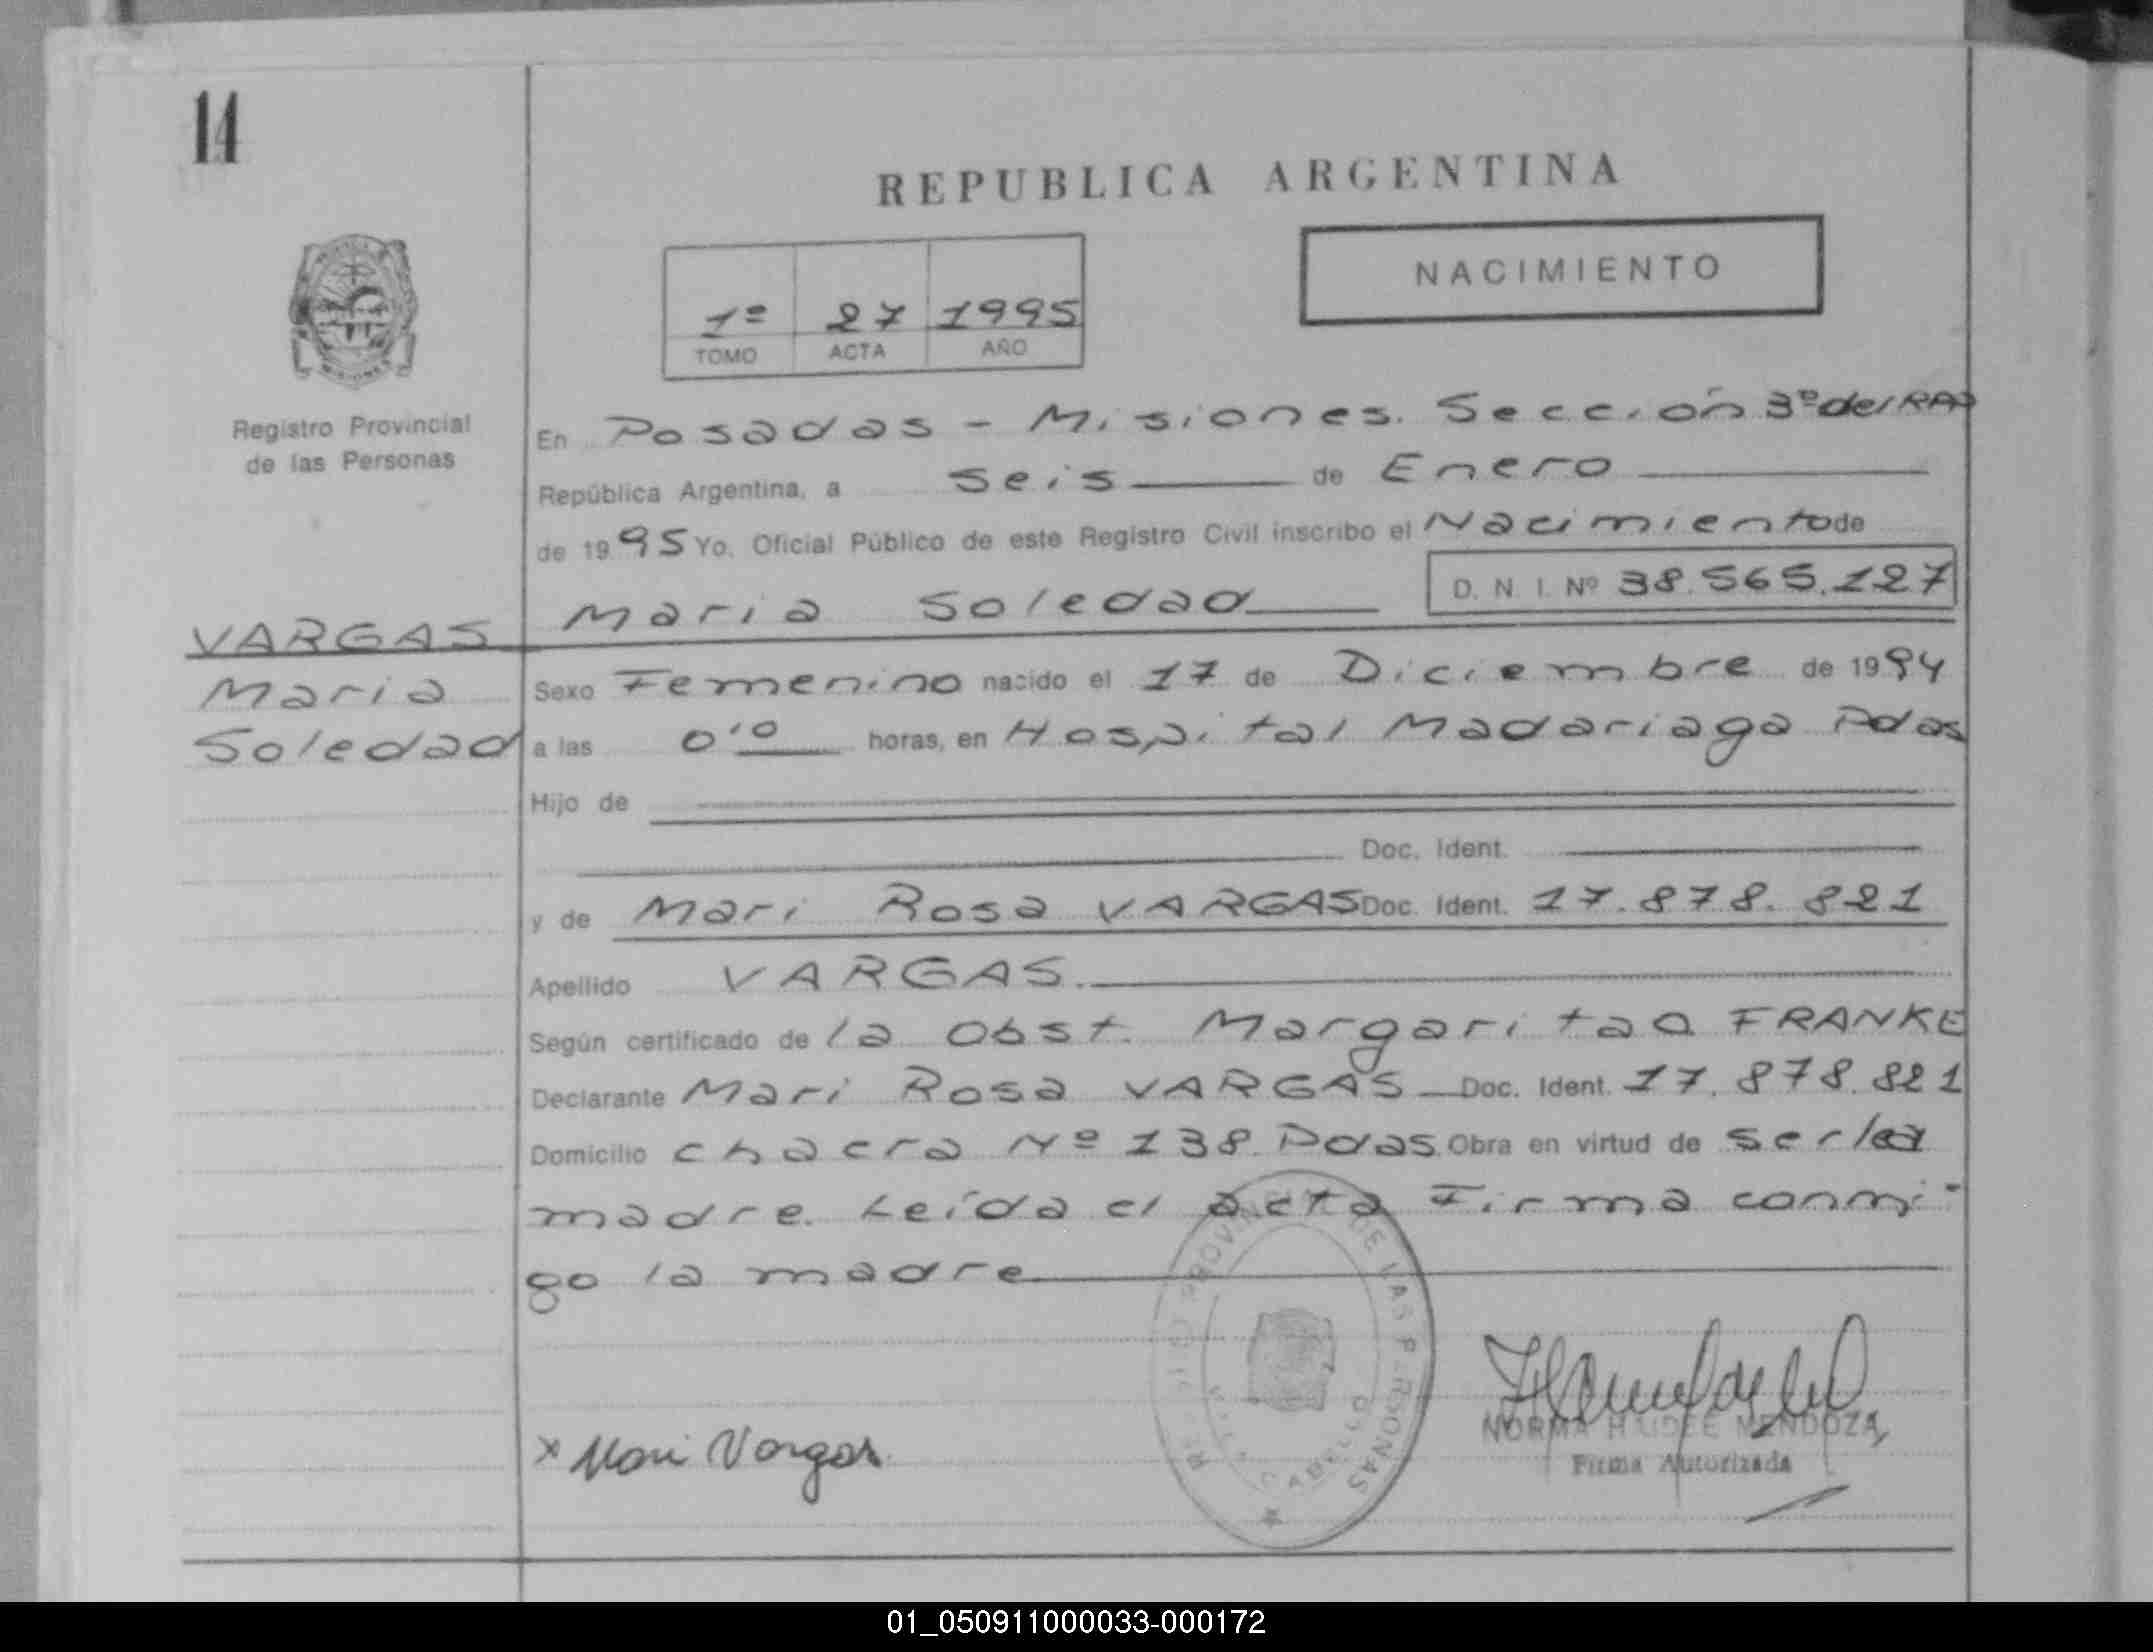 14
REPUBLICA ARGENTINA
NACIMIENTO
1º 27 1995
TOMO ACTA AÑO
Registro Provincial
de las Personas
En Posadas - Misiones. Sección 3º del RP
República Argentina, a seis de Enero
de 1995 Yo, Oficial Público de este Registro Civil inscribo el Nacimiento de
Maria Soledad D. N. I. Nº 38.565.127
VARGAS
Maria
Soledad
Sexo Femenino nacido el 17 de Diciembre de 1994
a las 0'10 horas, en Hospital Madariaga Pdas
Hijo de
Doc. Ident.
y de Mari Rosa VARGAS Doc. Ident. 17.878.821
Apellido VARGAS.
Según certificado de la Obst. Margarita FRANKE
Declarante Mari Rosa VARGAS Doc. Ident. 17.878.821
Domicilio chacra Nº 138 Pdas Obra en virtud de ser la
madre. Leída el acta Firma conmi-
go la madre
x Mari Vargas
NORMA HAIDEE MENDOZA
Firma Autorizada
DE LAS PERSONAS
CABELLO
01_050911000033-000172